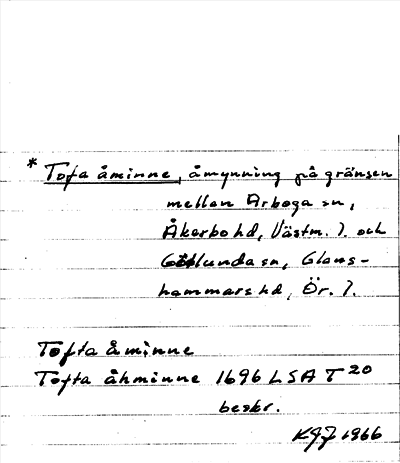 * Tofa åminne, åmynning på gränsen
mellan Arboga sn,
Åkerbo hd, Västm. l. och
Götlunda sn, Glans-
hammars hd, Ör. l.
Tofta åminne
Tofta åhminne 1696 LSA T 20
beskr.
KGJ 1966